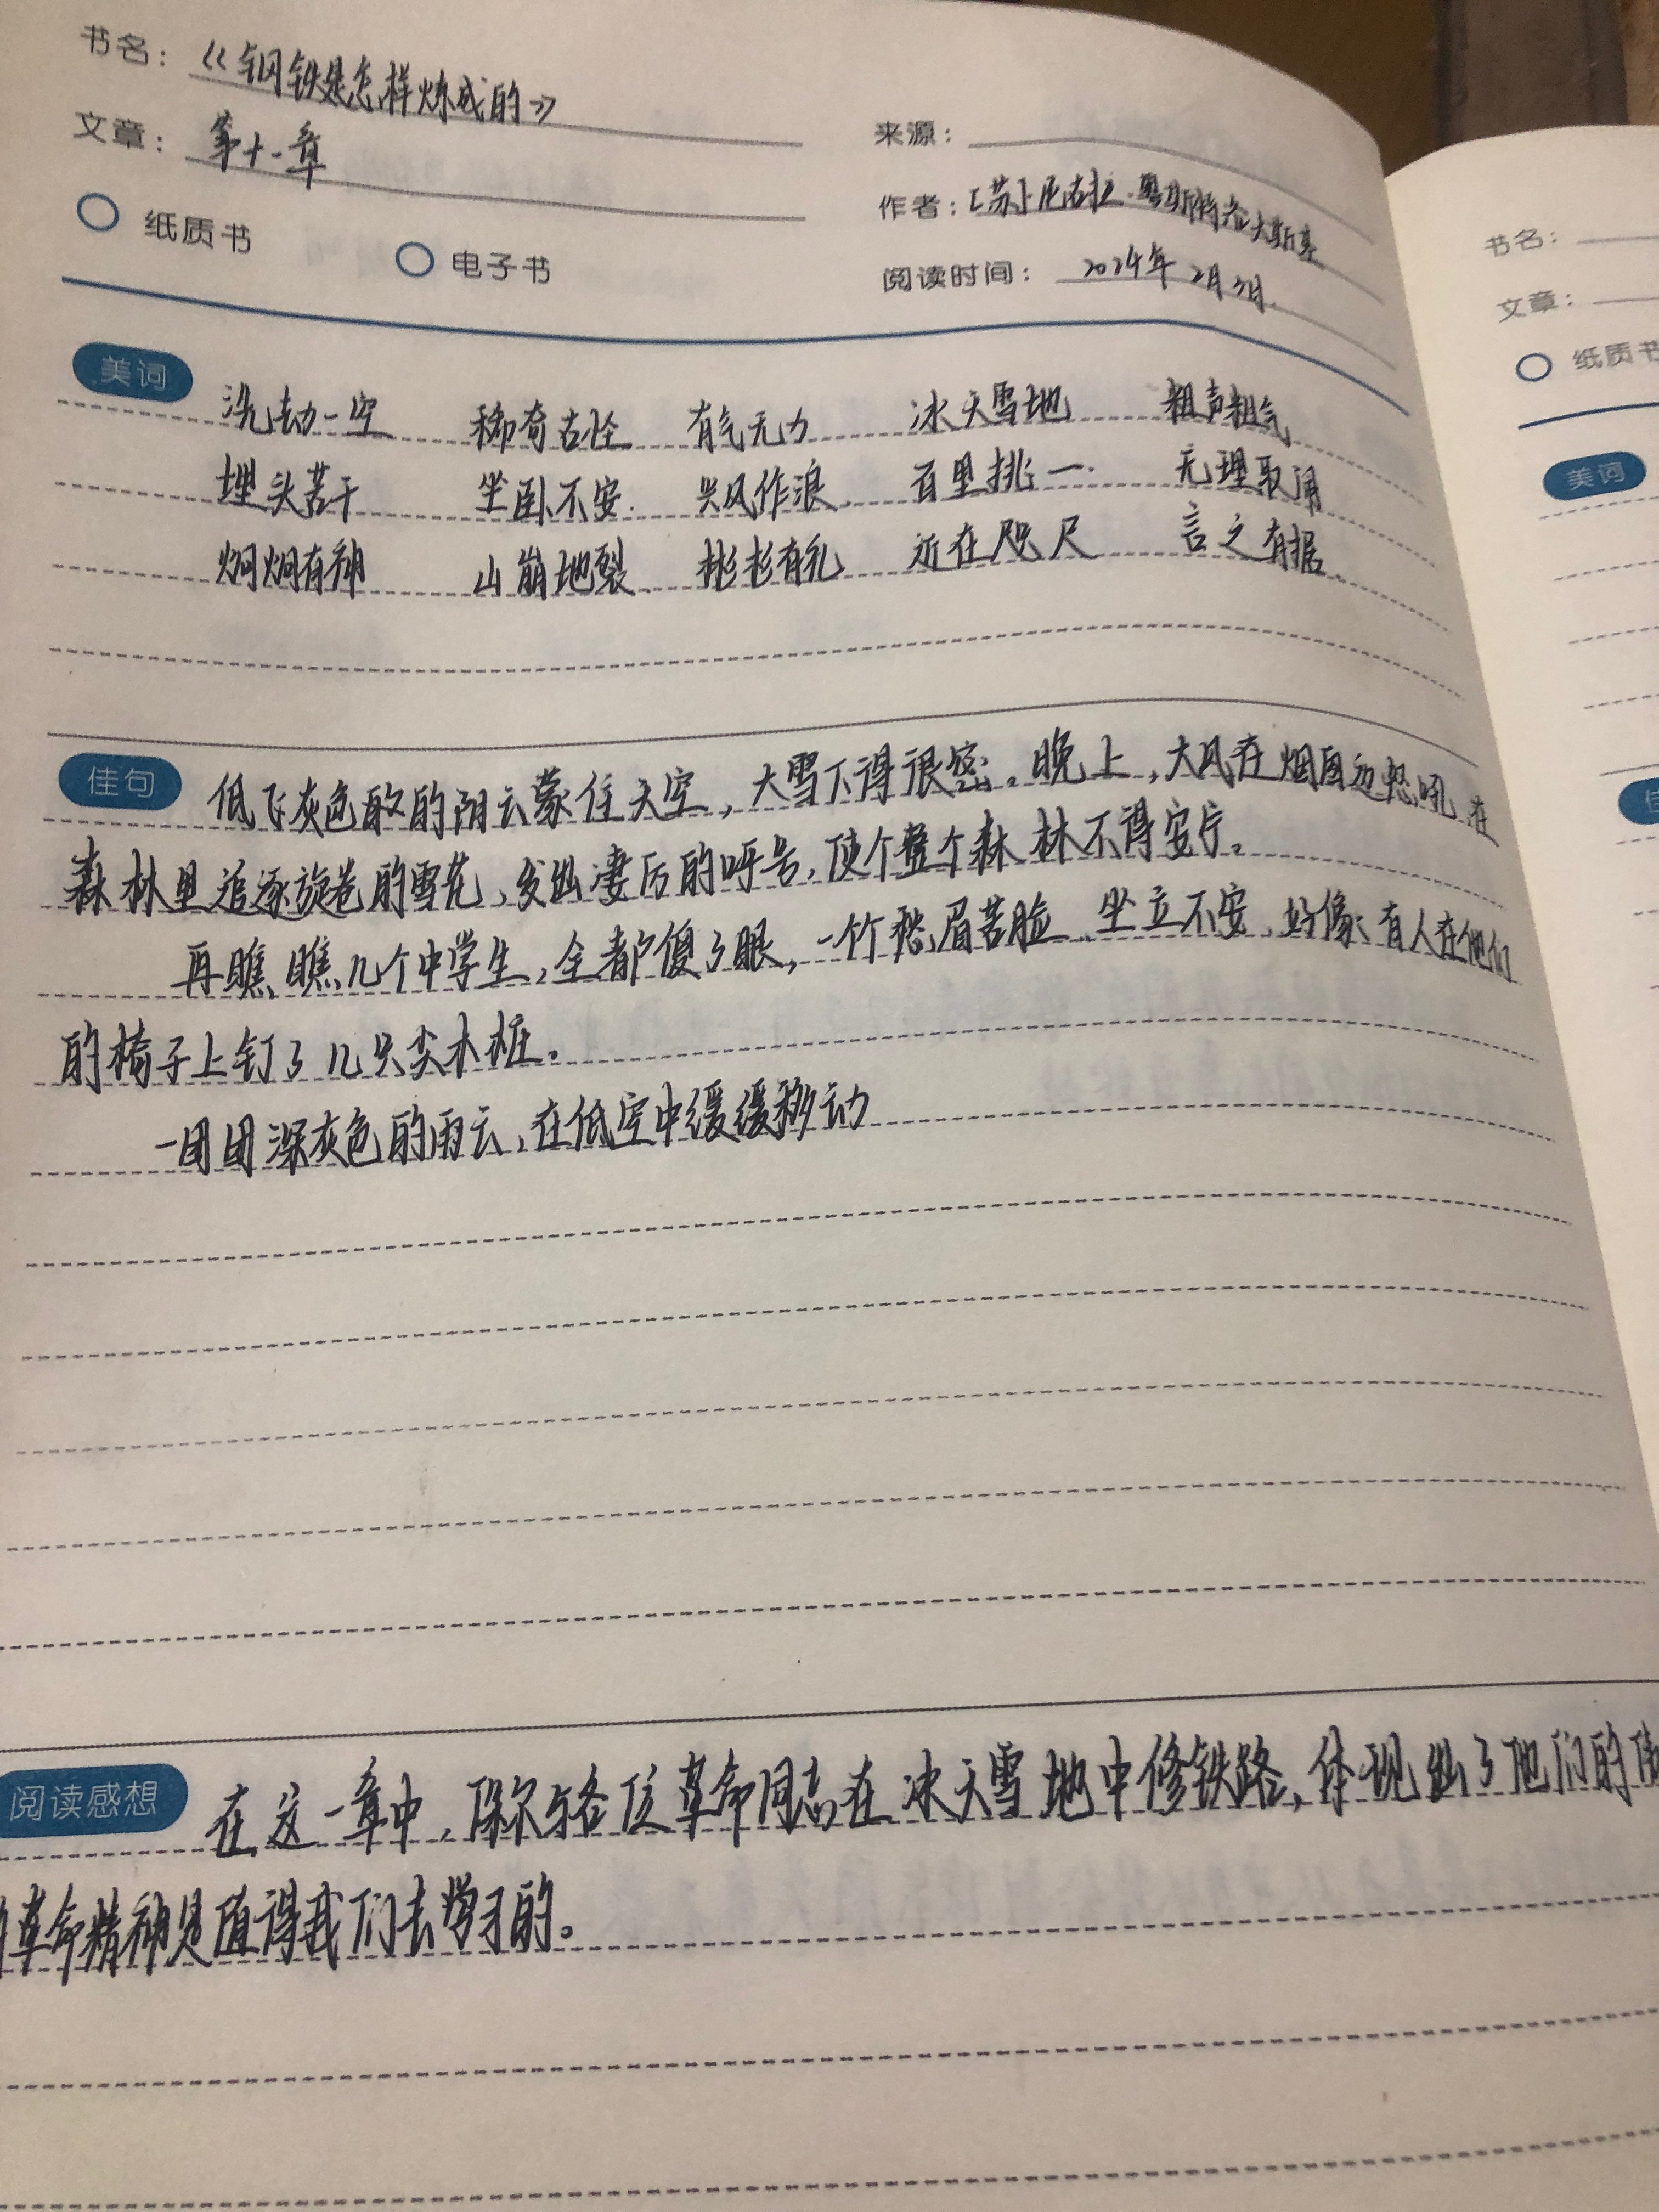 书名：《钢铁是怎样炼成的》
文章：第十一章
纸质书 电子书
来源：
作者：[苏]尼古拉·奥斯特洛夫斯基
阅读时间：2024年2月3日.
美词 洗劫一空 稀奇古怪 有气无力 冰天雪地 粗声粗气
埋头苦干 坐卧不安. 兴风作浪 百里挑一. 无理取闹
炯炯有神 山崩地裂 彬彬有礼 近在咫尺 言之有据
佳句 低飞灰色的阴云蒙住天空，大雪下得很密。晚上，大风在烟囱边怒吼 在
森林里追逐旋卷的雪花，发出凄厉的呼告，使个整个森林不得安宁。
再瞧瞧几个中学生，全都傻了眼，一个愁眉苦脸 坐立不安，好像有人在他们
的椅子上钉了几只尖木桩。
一团团深灰色的雨云，在低空中缓缓移动
阅读感想 在这一章中，保尔与各位革命同志在冰天雪地中修铁路，体现出了他们的
革命精神是值得我们去学习的。
书名：
文章：
纸质书
美词